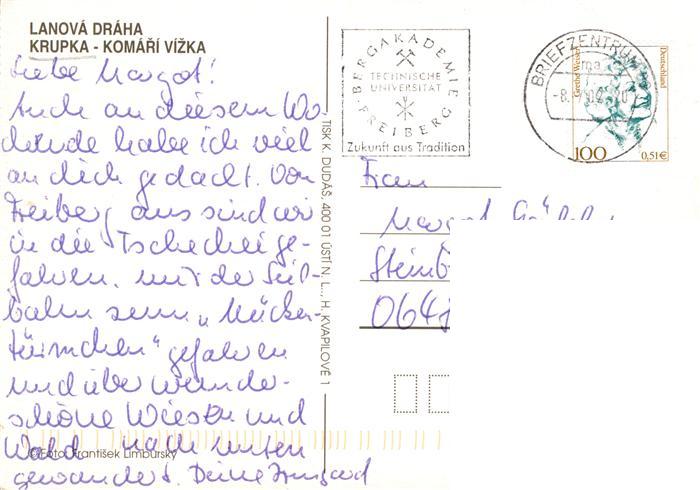 LANOVÁ DRÁHA
KRUPKA - KOMÁŘÍ VÍŽKA
Liebe Margot!
Auch an diesem Wo-
chenende habe ich viel
an dich gedacht. Von
Freiberg aus sind wir
in die Tschechei ge-
fahren, mit der Seil-
bahn zum „Mücken-
türmchen" gefahren
und über wunder-
schöne Wiesen und
Wald nach unten
gewandert. Deine Irmgard
©Foto: František Limburský
TISK K. DUDÁS, 400 01 ÚSTÍ N. L., H. KVAPILOVÉ 1
BERGAKADEMIE
TECHNISCHE
UNIVERSITÄT
FREIBERG
Zukunft aus Tradition
BRIEFZENTRUM
Grethe Weiser
Deutschland
100
0,51€
Frau
Margot
Steinb
064